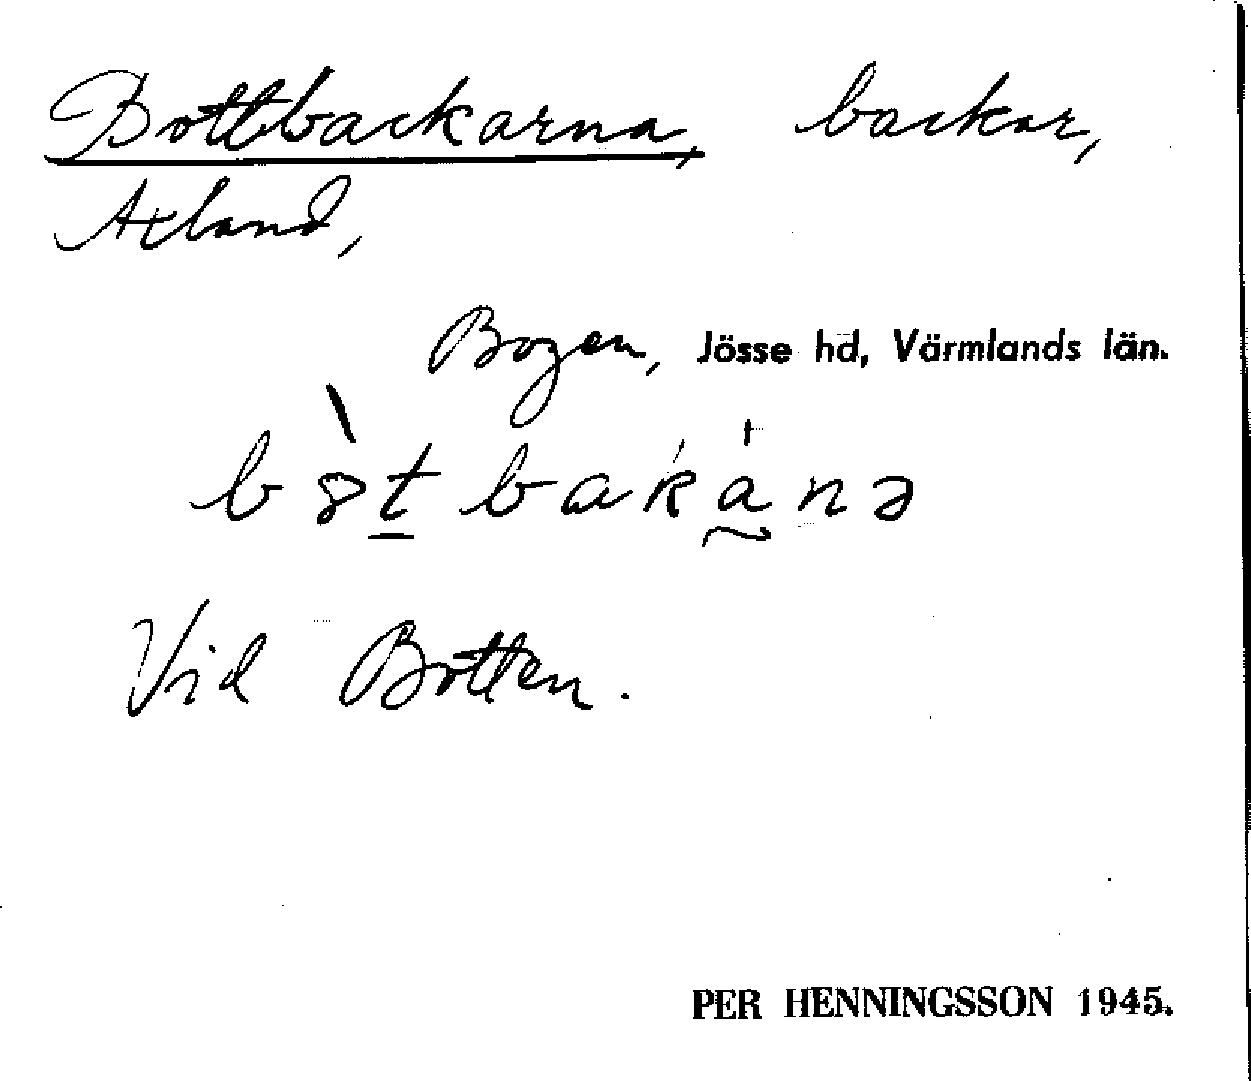 Bottbackarna, backar,
Axland,
Bogen, Jösse hd, Värmlands län.
bȣ̀t̠bakana̰nə
Vid Botten.
PER HENNINGSSON 1945.